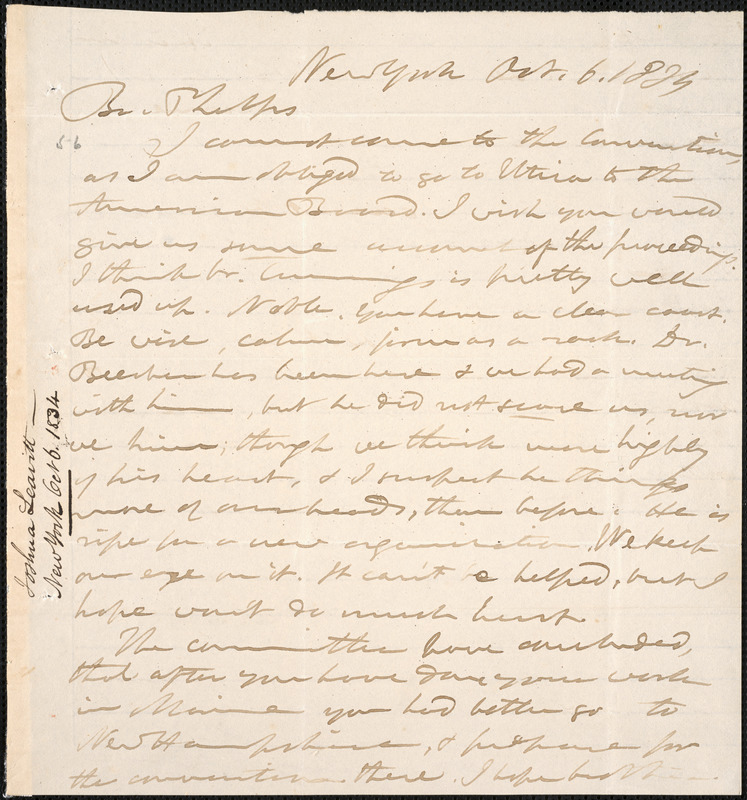 New York Oct. 6. 1834
Br. Phelps
56
I cannot come to the Convention,
as I am obliged to go to Utica to the
American Board. I wish you would
give us some account of the proceedings.
I think br. Cummings is pretty well
used up. Noble. You have a clear coast.
Be wise, calm, firm as a rock. Dr.
Beecher has been here & we had a meeting
with him, but he did not scare us, nor
we him; though we think more highly
of his heart, & I suspect he things
more of our heads, than before. He is
ripe for a new organization. We keep
our eye on it. It can't be helped, but I
hope won't do much hurt.
The committee have concluded,
that after you have done your work
in Maine you had better go to
New Hampshire, & prepare for
the convention there. I hope
Joshua Leavitt —
New York Oct 6. 1834